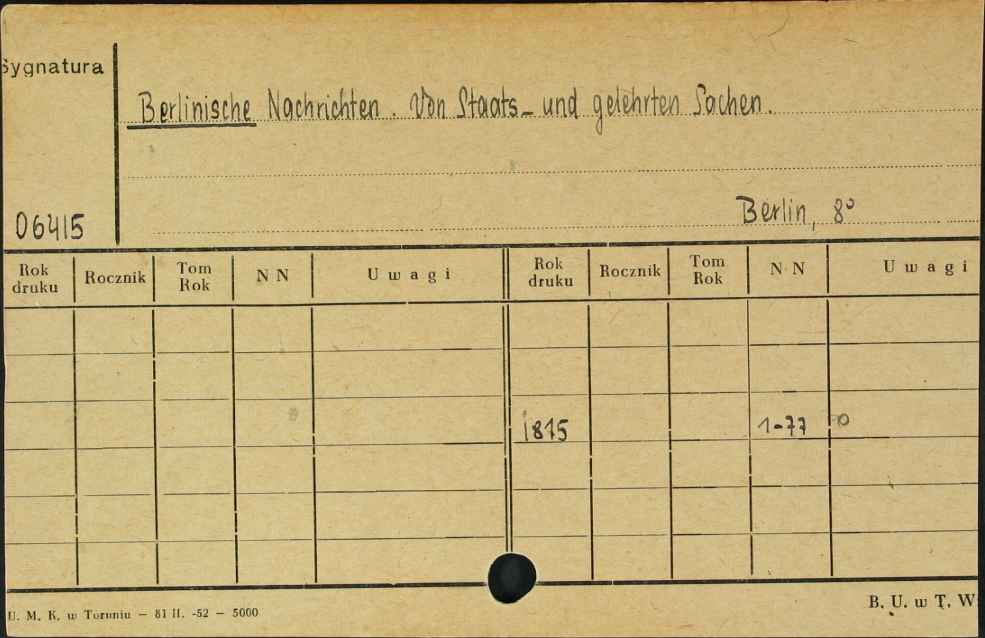 Sygnatura
Berlinische Nachrichten. Von Staats- und gelehrten Sachen.
06415
Berlin, 8°
Rok druku Rocznik Tom Rok N N Uwagi Rok druku Rocznik Tom Rok N N Uwagi
1815 1-77
U. M. K. w Toruniu — 81 II. -52 — 5000
B. U. w T. W